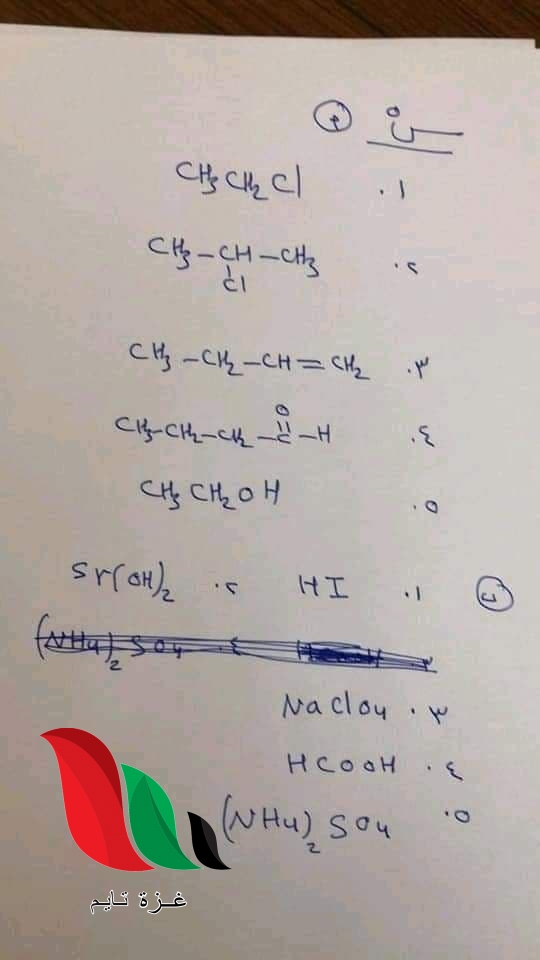 س٥ (P)
١. CH3CH2Cl
٢. CH3-CH-CH3
Cl
٣. CH3-CH2-CH=CH2
O
٤. CH3-CH2-CH2-C-H
٥. CH3CH2OH
(ب) ١. HI ٢. Sr(OH)2
(NH4)2SO4 .٤
٣. NaClO4
٤. HCOOH
٥. (NH4)2SO4
غـزة تـايـم